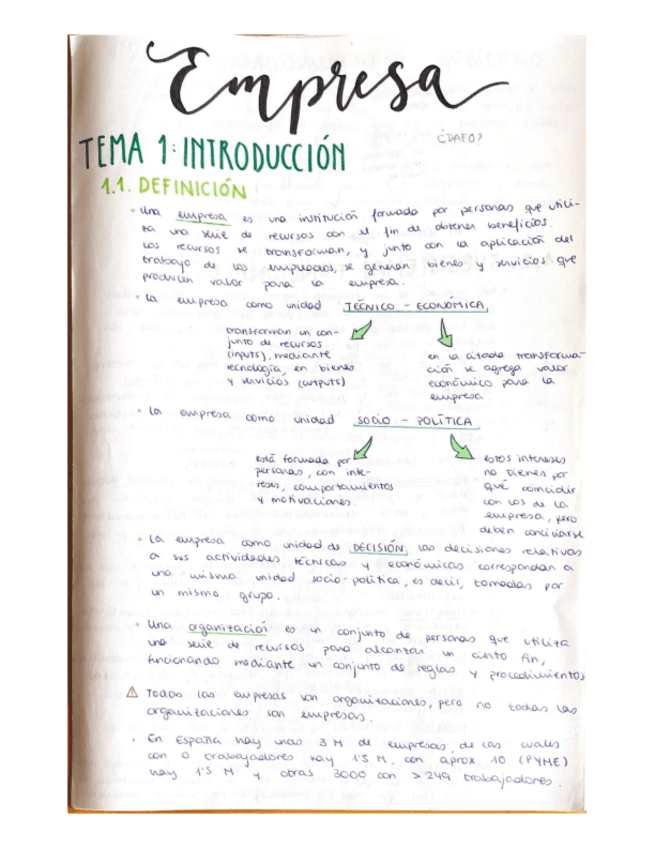 Empresa
¿DAFO?
TEMA 1: INTRODUCCIÓN
1.1. DEFINICIÓN
• Una empresa es una institución formada por personas que utili-
za una serie de recursos con el fin de obtener beneficios.
Los recursos se transforman, y junto con la aplicación del
trabajo de los empleados, se generan bienes y servicios que
producen valor para la empresa.
• La empresa como unidad TÉCNICO - ECONÓMICA
transforman un con-
junto de recursos
(inputs), mediante
tecnología, en bienes
y servicios (outputs)
en la citada transforma-
ción se agrega valor
económico para la
empresa.
• La empresa como unidad SOCIO - POLÍTICA
está formada por
personas, con inte-
reses, comportamientos
y motivaciones.
estos intereses
no tienen por
qué coincidir
con los de la
empresa, pero
deben conciliarse
• La empresa como unidad de DECISIÓN, las decisiones relativas
a sus actividades técnicas y económicas correspondan a
una misma unidad socio-política, es decir, tomadas por
un mismo grupo.
• Una organización es un conjunto de personas que utiliza
una serie de recursos para alcanzar un cierto fin,
funcionando mediante un conjunto de reglas y procedimientos
⚠ Todas las empresas son organizaciones, pero no todas las
organizaciones son empresas.
• En España hay unas 3 M de empresas, de las cuales
con 0 trabajadores hay 1'5 M, con aprox. 10 (PYME)
hay 1'5 M y otras 3000 con > 249 trabajadores.